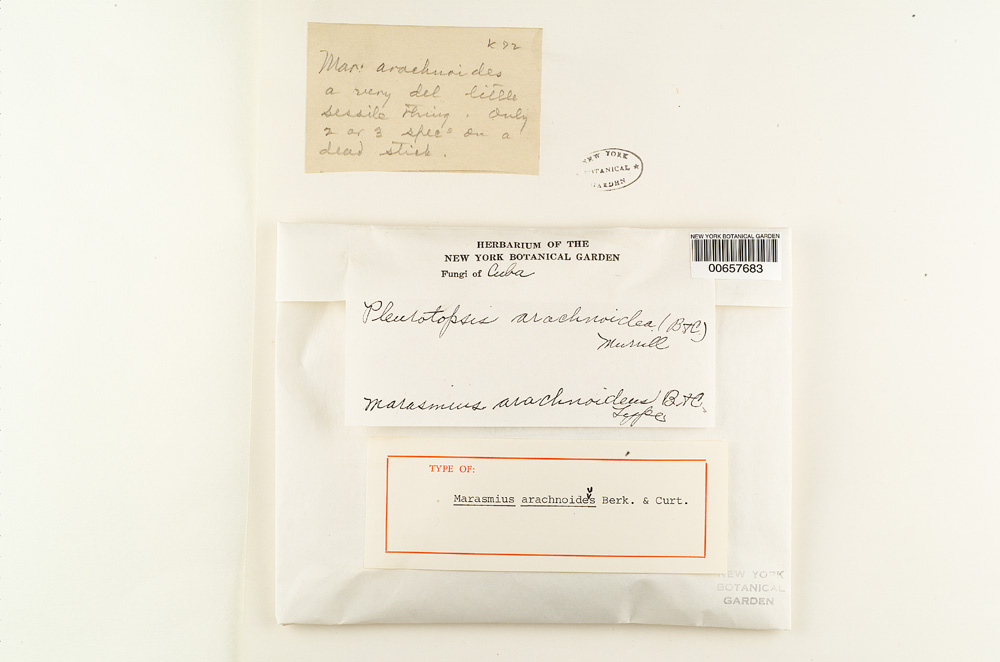 K 92
Mar. arachnoides
a very del little
sessile thing. Only
2 or 3 specs on a
dead stick.
NEW YORK
BOTANICAL
GARDEN
HERBARIUM OF THE
NEW YORK BOTANICAL GARDEN
Fungi of Cuba
NEW YORK BOTANICAL GARDEN
00657683
Pleurotopsis arachnoidea (B+C)
Murrill
Marasmius arachnoideus B.+C.
Type
TYPE OF:
Marasmius arachnoideus Berk. & Curt.
NEW YORK
BOTANICAL
GARDEN